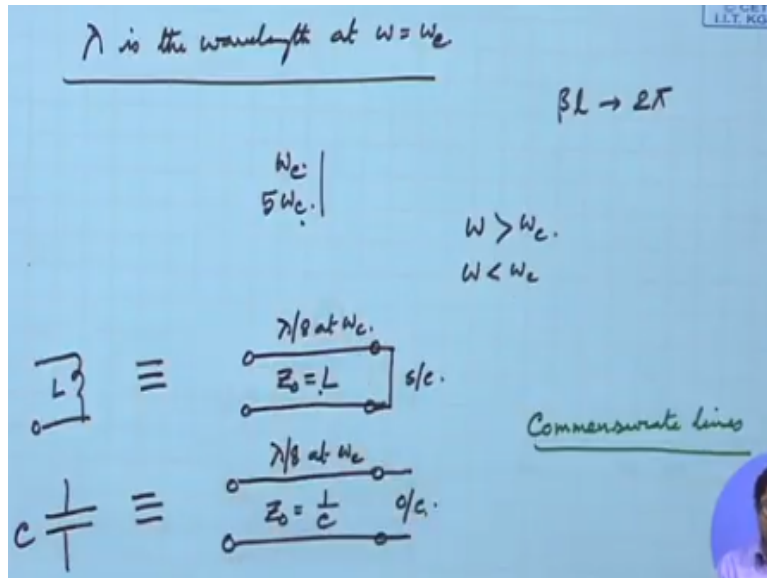 © CET
I.I.T. KG
λ is the wavelength at ω = ωc
βl → 2π
ωc.
5ωc.
ω > ωc.
ω < ωc
λ/8 at ωc.
L
≡
Z₀ = L
s/c.
Commensurate lines
λ/8 at ωc
C
≡
Z₀ = 1/C
o/c.